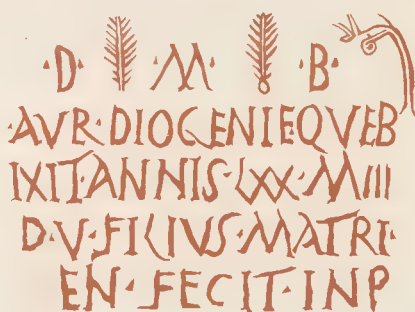 ·D· M· ·B·
·AVR·DIOGENIEQVEB
IXIT·ANNIS·LXX·MIII
D·V·FILIVS·MATRI·
EN·FECIT·INP